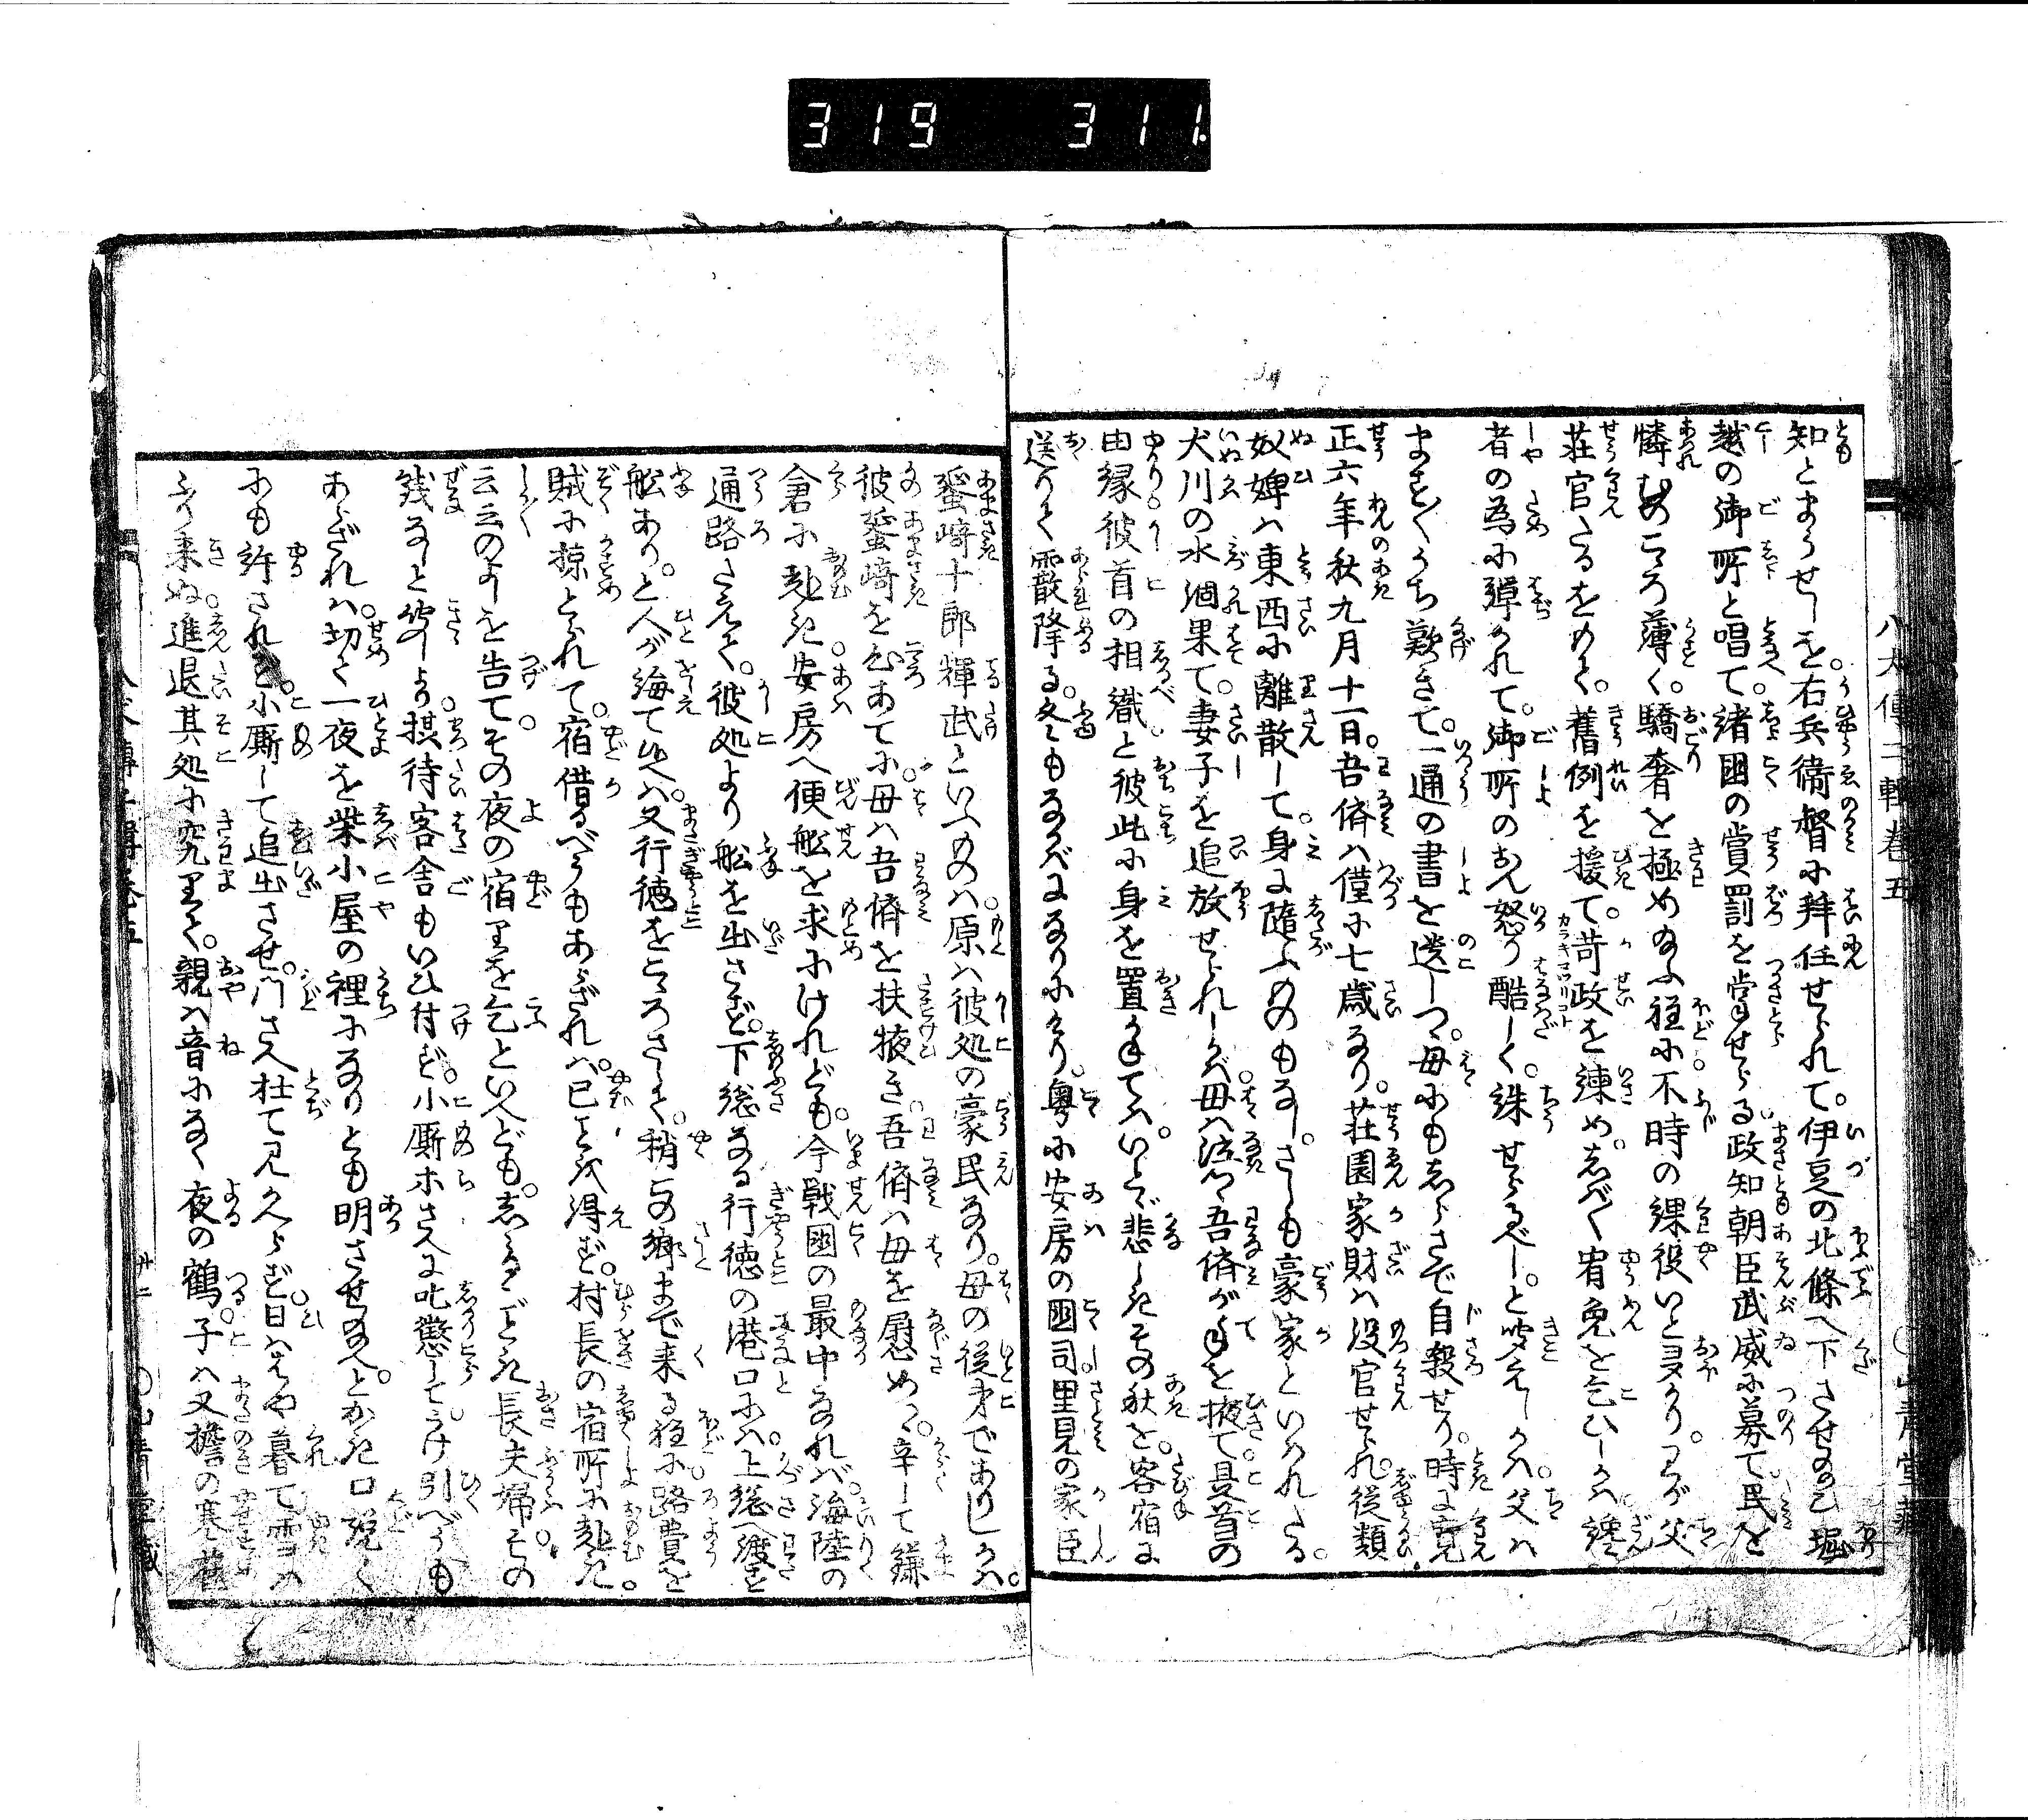 319 311.
八犬傳二輯巻五 山青堂藏
知とまうせしを。右兵衛督に拜任せられて。伊豆の北條へ下させ給ひ堀
越の御所と唱て。諸國の賞罰を掌せらる政知朝臣武威に募て民を
憐むのこゝろ薄く。驕奢を極め給ふ程に不時の課役いと多かり。わが父
荘官たるをもて。舊例を援て。苛政を諫め。しば〳〵宥免を乞ひしかば讒
者の為に譖れて。御所のおん怒り酷しく。誅せらるべし。と聞えしかば。父は
ます〳〵うち歎きて。一通の書を遺しつ。母にもしらさで自殺せり。時に寛
正六年秋九月十一日。吾儕は僅に七歳なり。荘園家財は没官せられ。従類
奴婢は東西に離散して。身に隨ふものもなし。さしも豪家といはれたる。
犬川の水涸果て。妻子を追放せられしかば。母は泣々吾儕が手を掖て。是首の
由縁彼首の相識と彼此に身を置かねては。いとゞ悲しきその秋を。客宿に
送りて霰降る。冬にもなればなりにけり。粤に安房の國司里見の家臣
蜑崎十郎輝武といふものは。原は彼処の豪民なり。母の従弟でありしかば。
彼蜑崎を心あてに。母は吾儕を扶掖き。吾儕は母を慰めつ。辛して鎌
倉に赴き安房へ便舩を求にけれども。今戦國の最中なれば。海陸の
通路たえて。彼処より舩を出さず。下総なる行徳の港口には。上総へ渡す
舩あり。と人が誨て候へば又行徳をこゝろざして。稍この郷まで来る程に路費を
賊に掠とられて。宿借るべうもあらざれば。已ことを得ず。村長の宿所に赴き。
云云のよしを告て。その夜の宿りを乞といへども。しるごとき長夫婦。その
銭なしと聞しより。款待客舎もいひ付ず。小廝ホさへに叱懲してうけ引べうも
あらざれば。切て一夜を柴小屋の裡になりとも明させ給へ。とかき口説く
にも許されず。小廝して追出させ。門さへ杜て見かへらず。日ははや暮て雪は
ふり来ぬ。進退其処に究りて。親は音になく夜の鶴。子は又簷の寒雀
八犬傳二輯巻五 廿二 山青堂藏